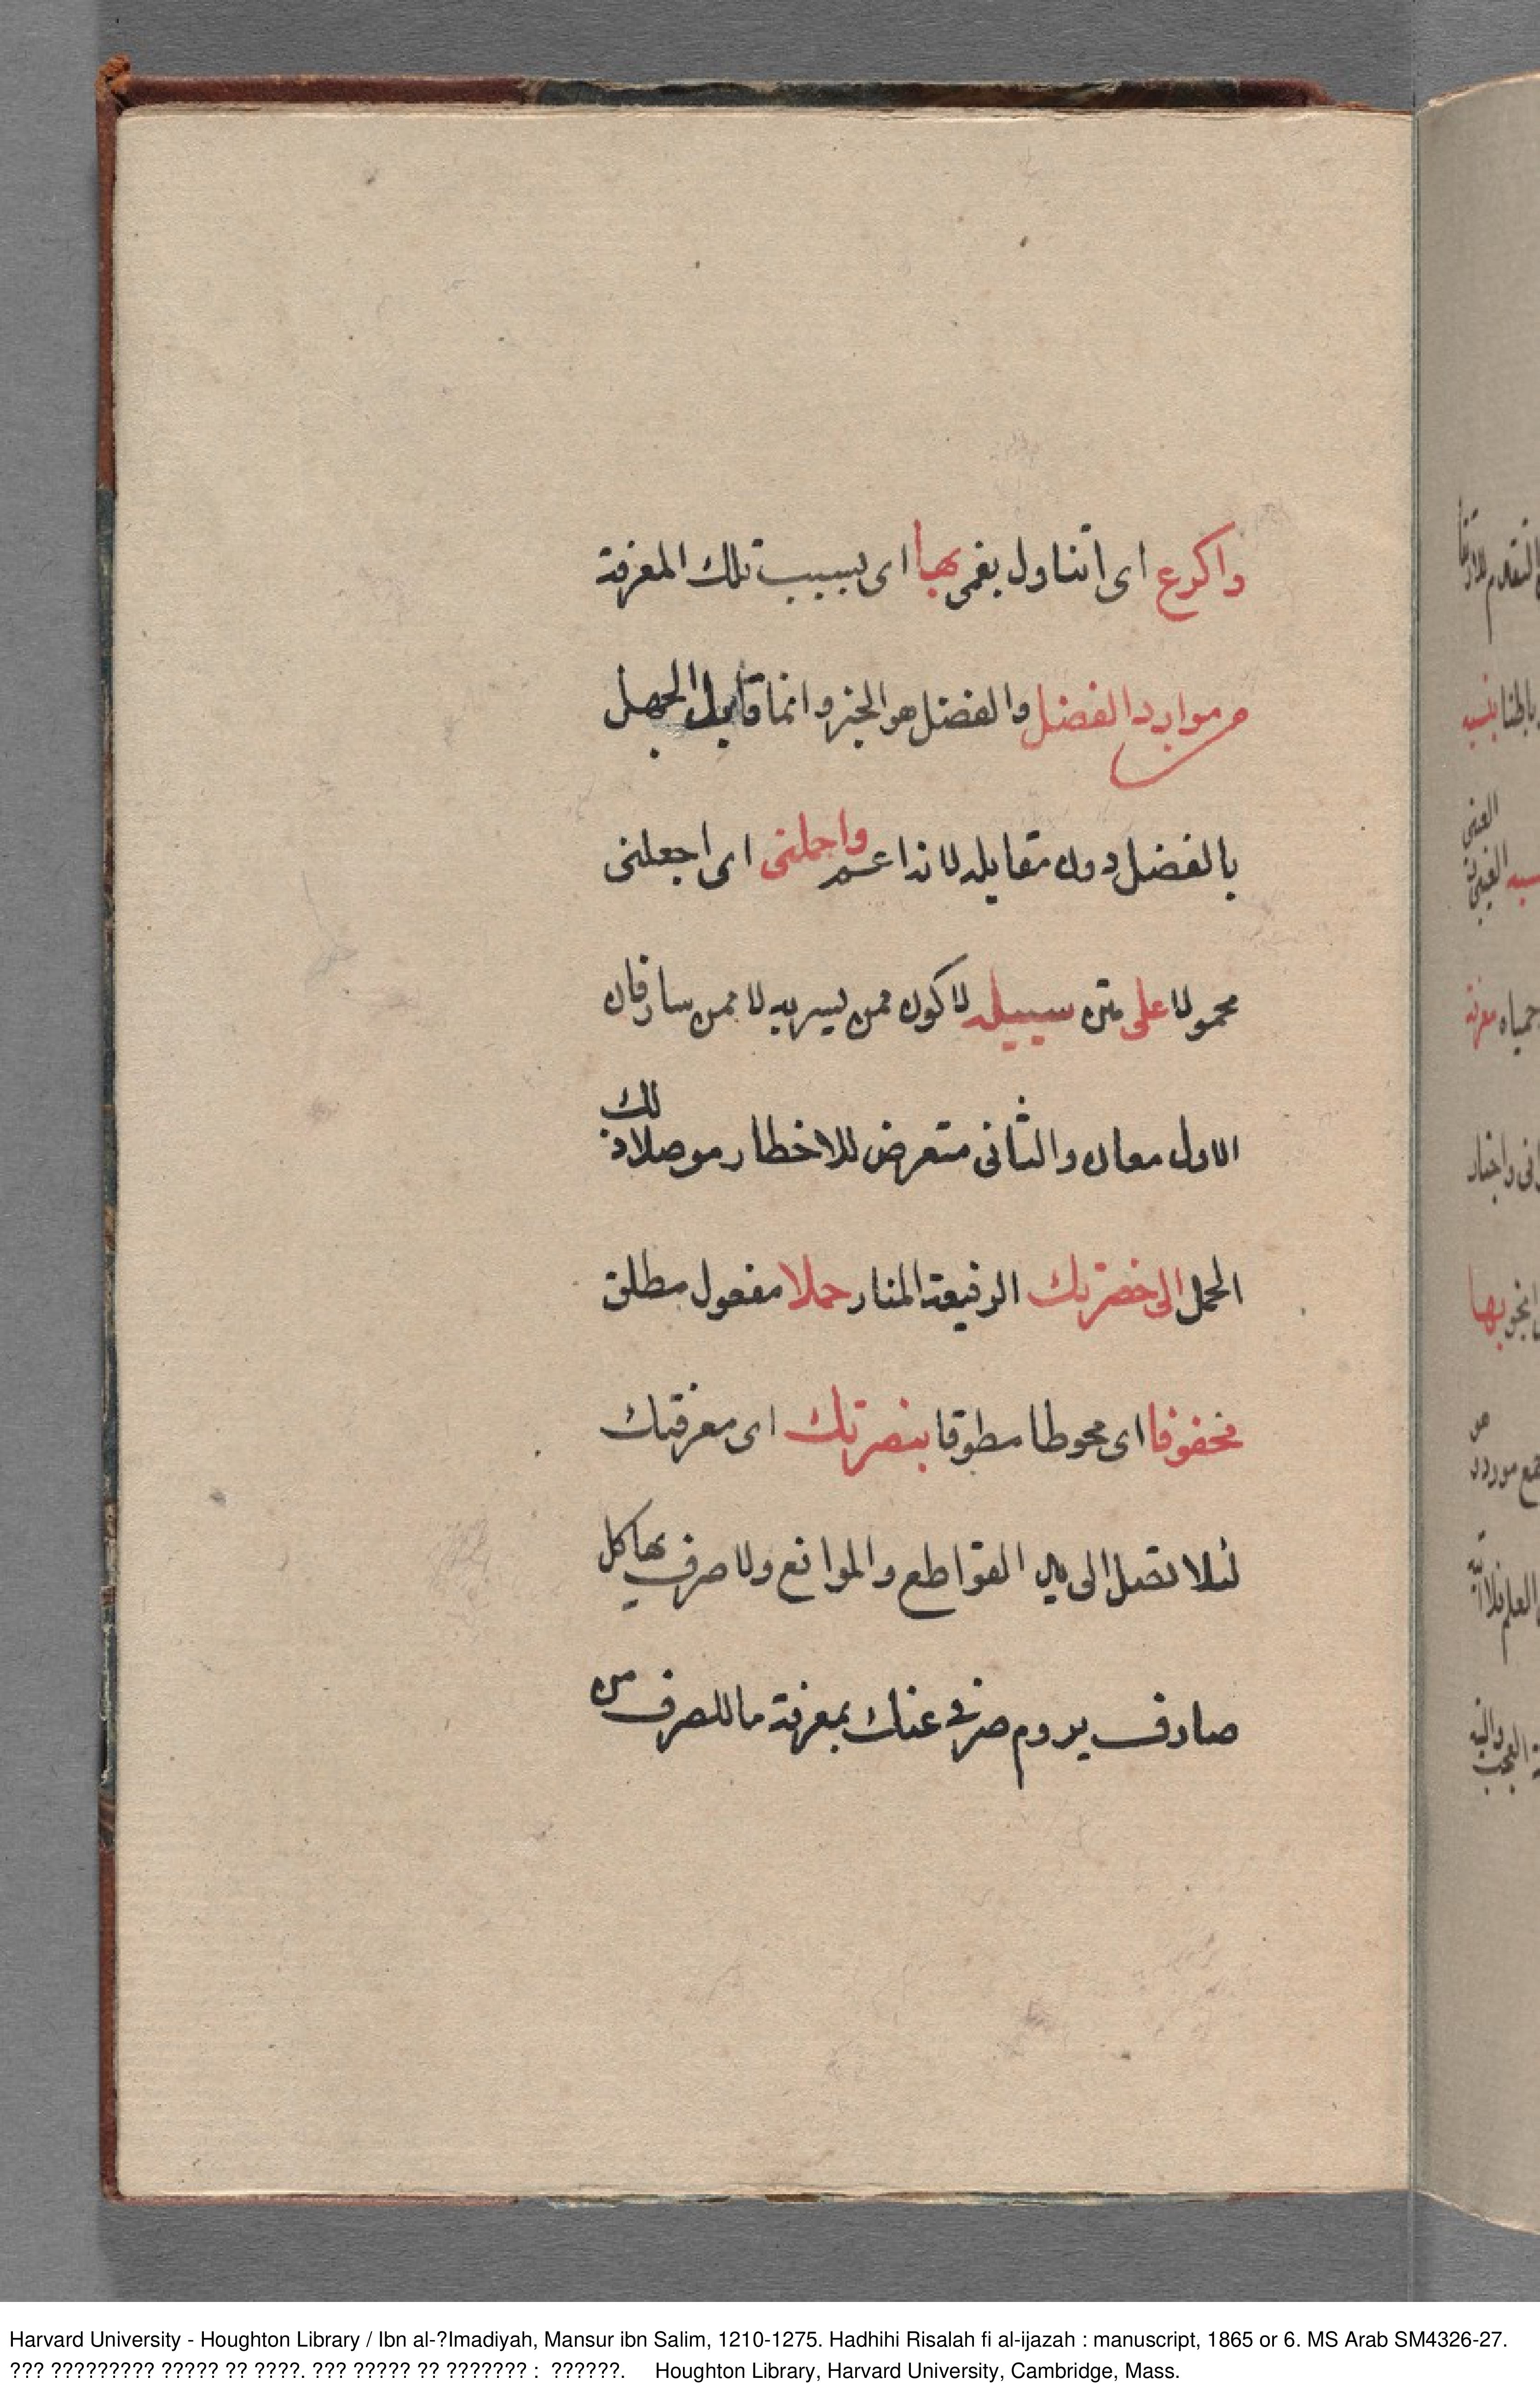 واكرع اى اتناول بفمى بها اى بسبب تلك المعرفة
من موارد الفضل والفضل هو الخير وانما قابل الجهل
بالفضل دون مقابله لانه اعم واحملنى اى اجعلنى
محمولا على متن سبيله لاكون ممن يسير به لا ممن سار فان
الاول معان والثانى متعرض للاخطار موصلا ذلك
الحمل الى حضرتك الرفيعة المنار حملا مفعول مطلق
محفوفا اى محوطا مطوقا بنصرتك اى معرفتك
لئلا تصل الى القواطع والموانع ولاصرف بها كل
صادف يروم صرفى عنك بمعرفة ما للصرف من
Harvard University - Houghton Library / Ibn al-?Imadiyah, Mansur ibn Salim, 1210-1275. Hadhihi Risalah fi al-ijazah : manuscript, 1865 or 6. MS Arab SM4326-27.
??? ????????? ????? ?? ????. ??? ????? ?? ??????? : ??????. Houghton Library, Harvard University, Cambridge, Mass.